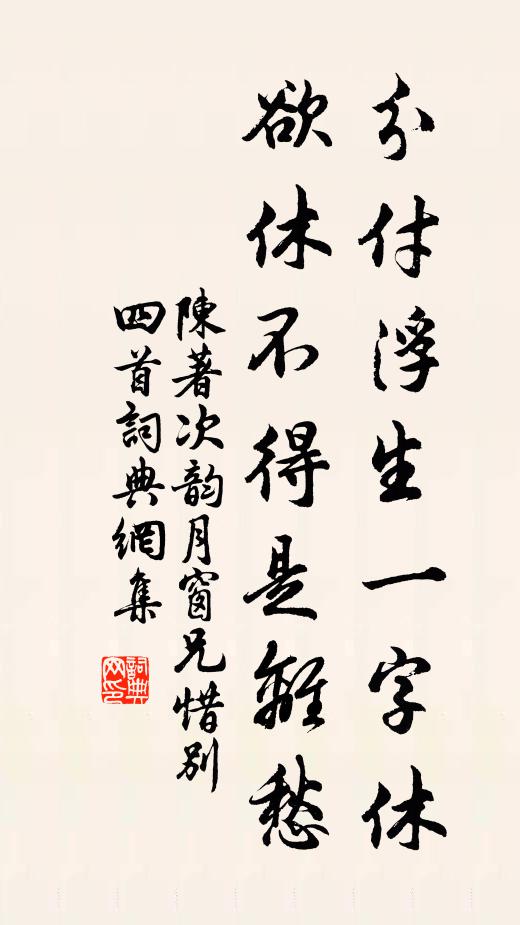 分付浮生一字休
欲休不得是離愁
陳著次韵月窗兄惜別
四首詞典網集
詞典網印